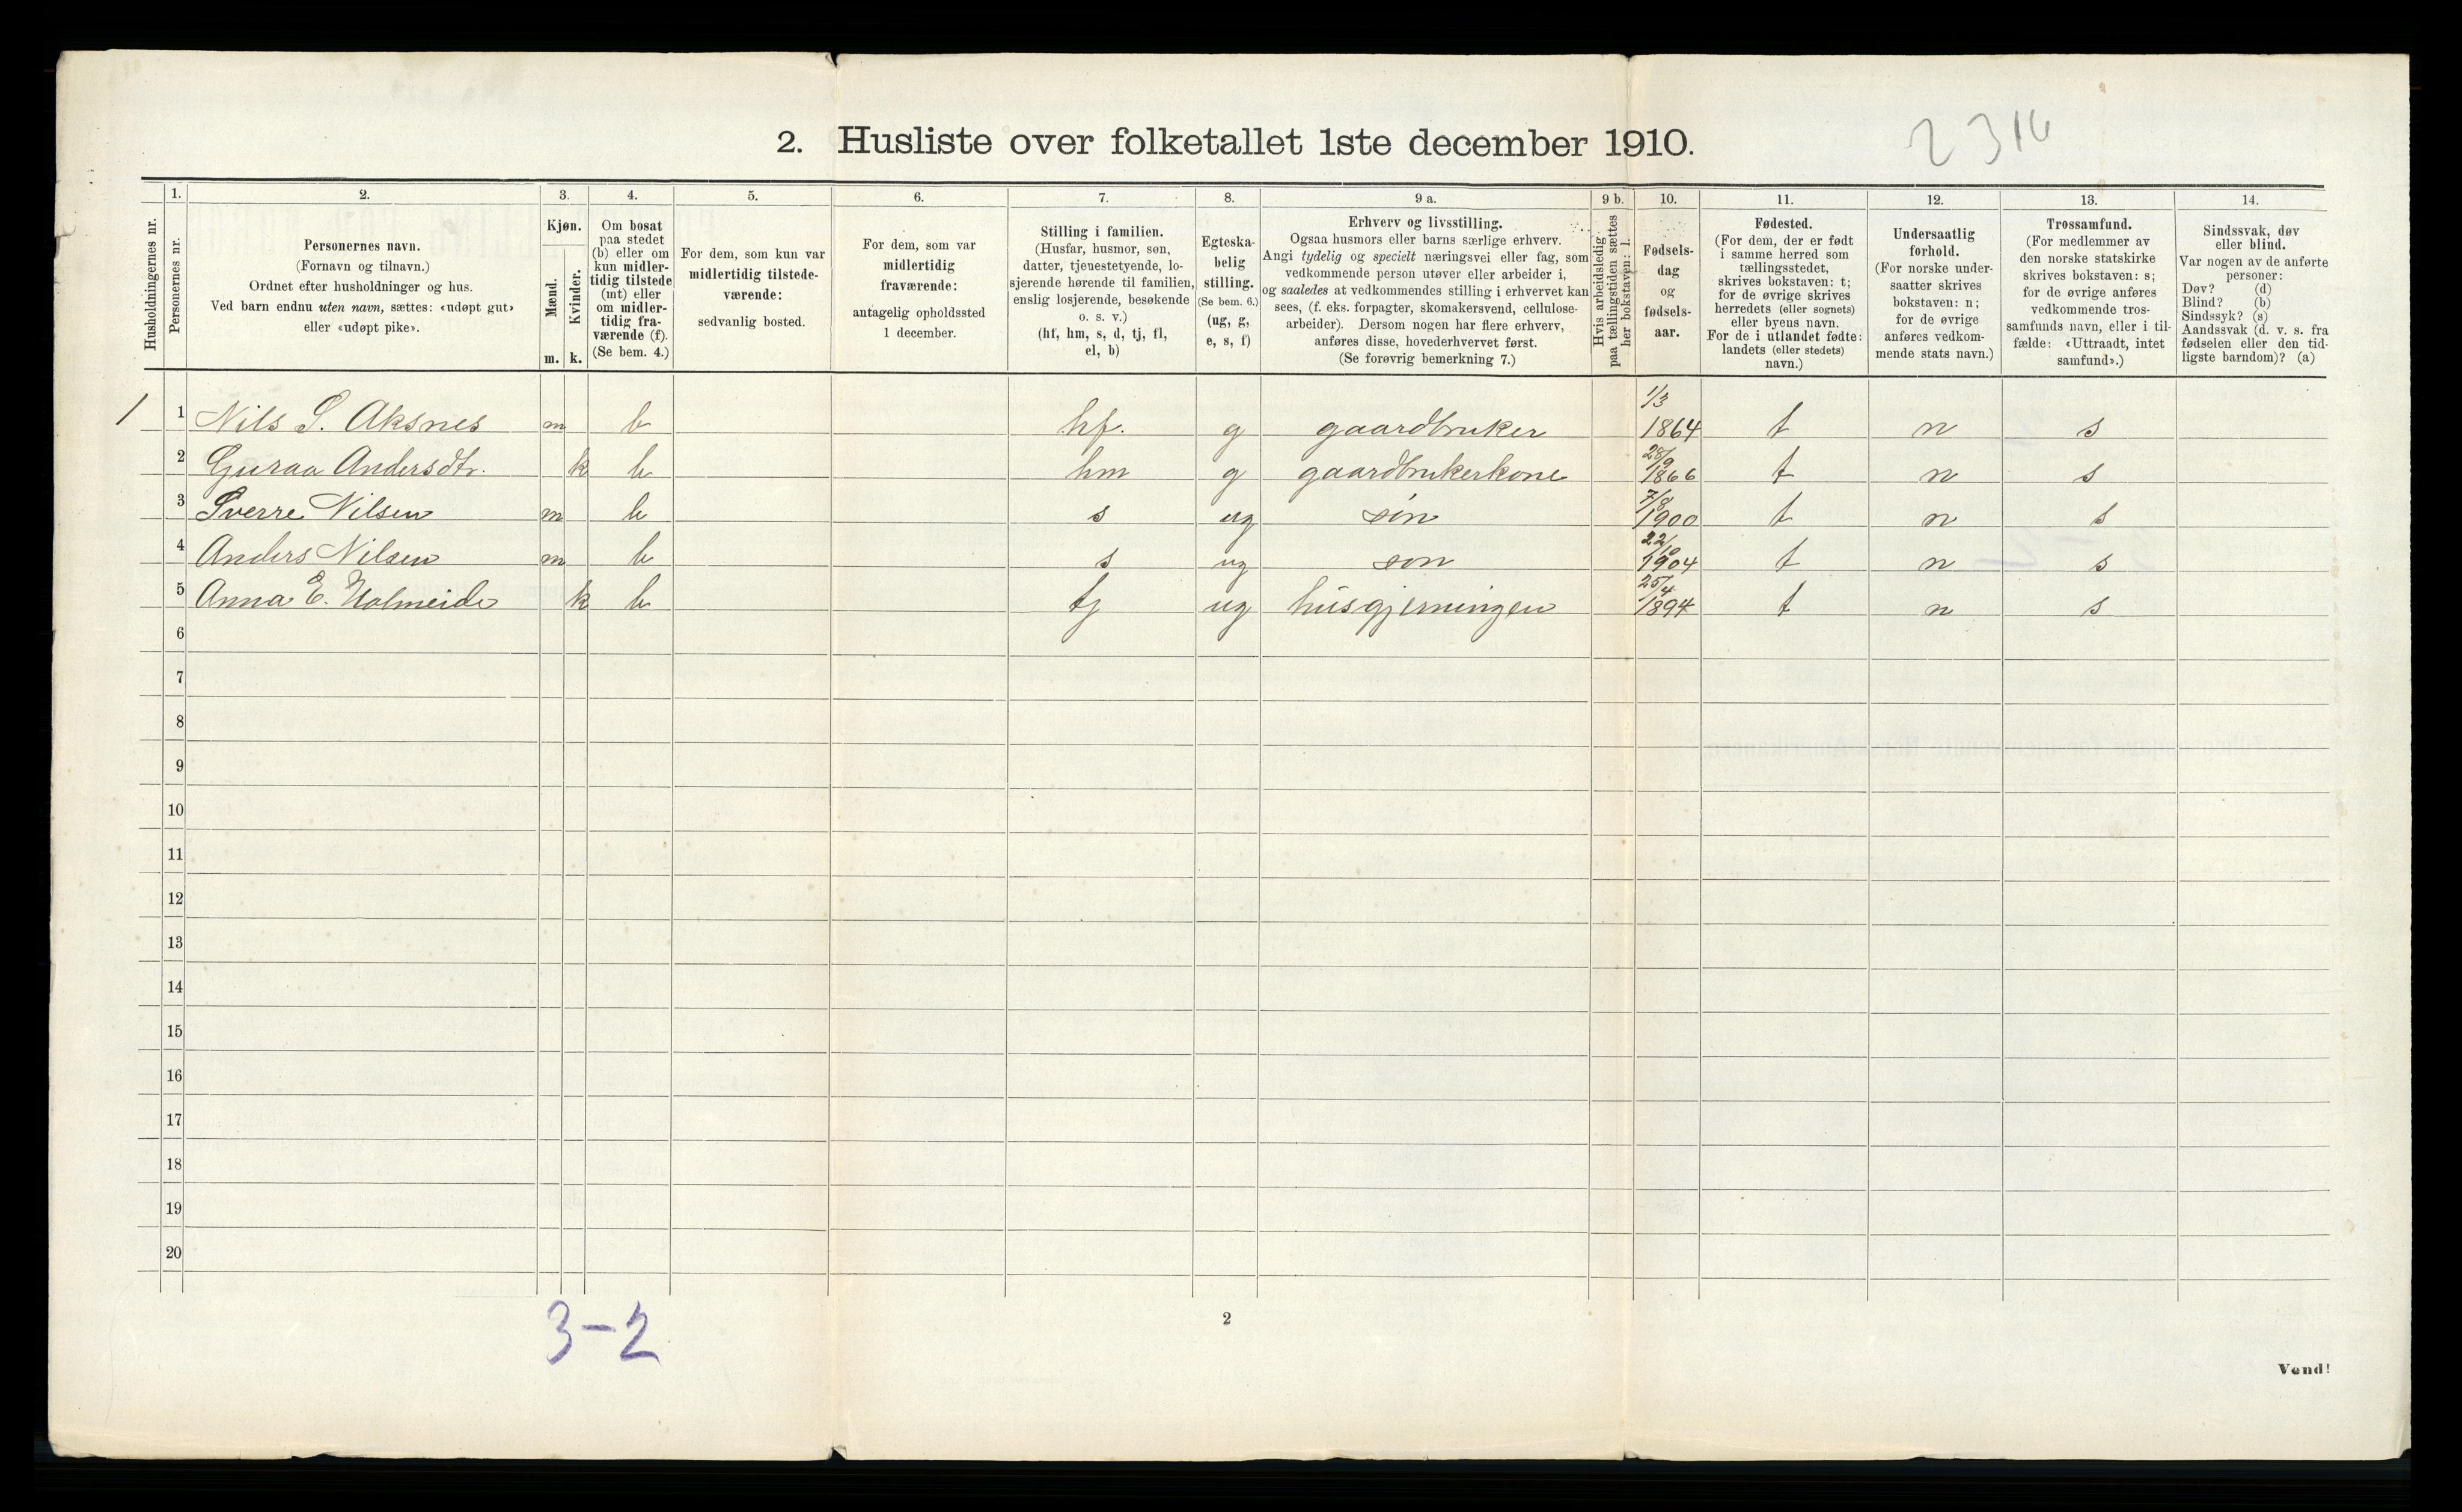 2. Husliste over folketallet 1ste december 1910.
1. 2. 3. 4. 5. 6. 7. 8. 9 a. 9 b. 10. 11. 12. 13. 14.
Husholdningernes nr.
Personernes nr.
Personernes navn.
(Fornavn og tilnavn.)
Ordnet efter husholdninger og hus.
Ved barn endnu uten navn, sættes: «udøpt gut»
eller «udøpt pike».
Kjøn.
Mænd.
m.
Kvinder.
k.
Om bosat
paa stedet
(b) eller om
kun midler-
tidig tilstede
(mt) eller
om midler-
tidig fra-
værende (f).
(Se bem. 4.)
For dem, som kun var
midlertidig tilstede-
værende:
sedvanlig bosted.
For dem, som var
midlertidig
fraværende:
antagelig opholdssted
1 december.
Stilling i familien.
(Husfar, husmor, søn,
datter, tjenestetyende, lo-
sjerende hørende til familien,
enslig losjerende, besøkende
o. s. v.)
(hf, hm, s, d, tj, fl,
el, b)
Egteska-
belig
stilling.
(Se bem. 6.)
(ug, g,
e, s, f)
Erhverv og livsstilling.
Ogsaa husmors eller barns særlige erhverv.
Angi tydelig og specielt næringsvei eller fag, som
vedkommende person utøver eller arbeider i,
og saaledes at vedkommendes stilling i erhvervet kan
sees, (f. eks. forpagter, skomakersvend, cellulose-
arbeider). Dersom nogen har flere erhverv,
anføres disse, hovederhvervet først.
(Se forøvrig bemerkning 7.)
Hvis arbeidsledig
paa tællingstiden sættes
her bokstaven: l.
Fødsels-
dag
og
fødsels-
aar.
Fødested.
(For dem, der er født
i samme herred som
tællingsstedet,
skrives bokstaven: t;
for de øvrige skrives
herredets (eller sognets)
eller byens navn.
For de i utlandet fødte:
landets (eller stedets)
navn.)
Undersaatlig
forhold.
(For norske under-
saatter skrives
bokstaven: n;
for de øvrige
anføres vedkom-
mende stats navn.)
Trossamfund.
(For medlemmer av
den norske statskirke
skrives bokstaven: s;
for de øvrige anføres
vedkommende tros-
samfunds navn, eller i til-
fælde: «Uttraadt, intet
samfund».)
Sindssvak, døv
eller blind.
Var nogen av de anførte
personer:
Døv? (d)
Blind? (b)
Sindssyk? (s)
Aandssvak (d. v. s. fra
fødselen eller den tid-
ligste barndom)? (a)
1 1 Nils S. Aksnes m b hf. g gaardbruker 1/3 1864 t n s
2 Guraa Andersdtr. k b hm g gaardbrukerkone 28/9 1866 t n s
3 Sverre Nilsen m b s ug søn 7/8 1900 t n s
4 Anders Nilsen m b s ug søn 22/10 1904 t n s
5 Anna E. Holmeide k b tj ug husgjerningen 25/4 1894 t n s
6
7
8
9
10
11
12
13
14
15
16
17
18
19
20
3-2
2
Vend!